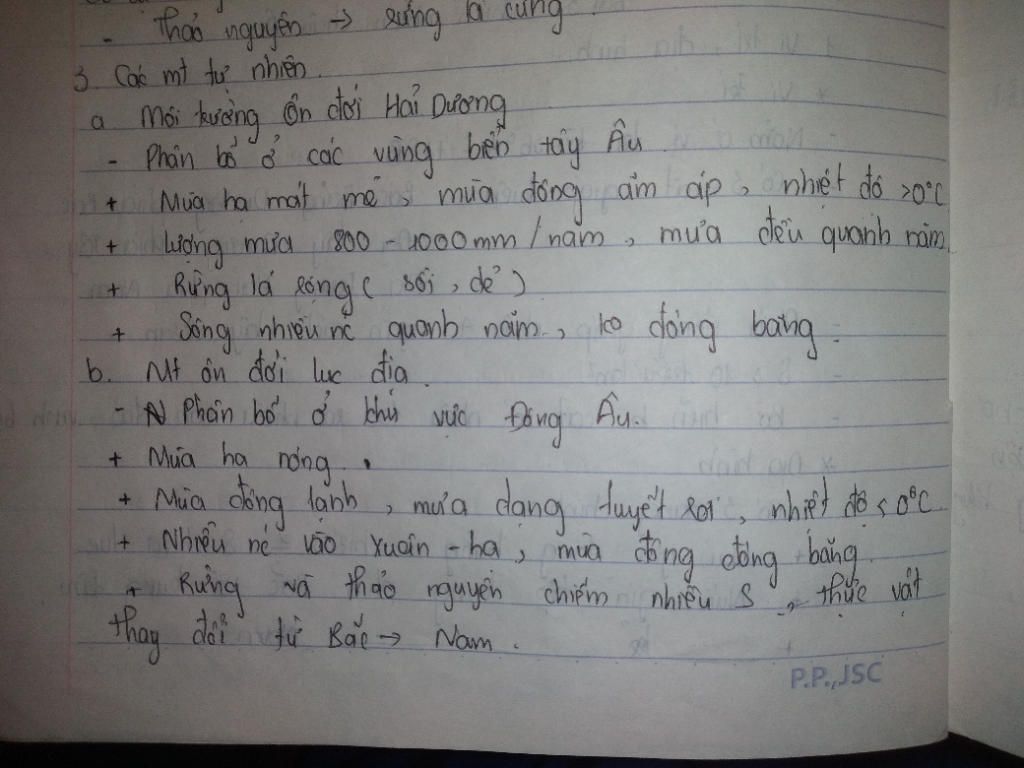 - Thảo nguyên → rừng lá cứng.
3. Các mt tự nhiên.
a Môi trường Ôn đới Hải Dương
- Phân bố ở các vùng biển tây Âu
+ Mùa hạ mát mẻ, mùa đông ấm áp, nhiệt độ >0°C
+ Lượng mưa 800 - 1000mm/năm, mưa đều quanh năm
+ Rừng lá rộng ( sồi, dẻ )
+ Sông nhiều nc quanh năm, ko đóng băng.
b. Mt ôn đới lục địa.
- Phân bố ở khu vực Đông Âu.
+ Mùa hạ nóng.
+ Mùa đông lạnh, mưa dạng tuyết rơi, nhiệt độ <0°C
+ Nhiều nc vào xuân - hạ, mùa đông đóng băng
+ Rừng và thảo nguyên chiếm nhiều S, thực vật
thay đổi từ Bắc → Nam.
P.P.,JSC